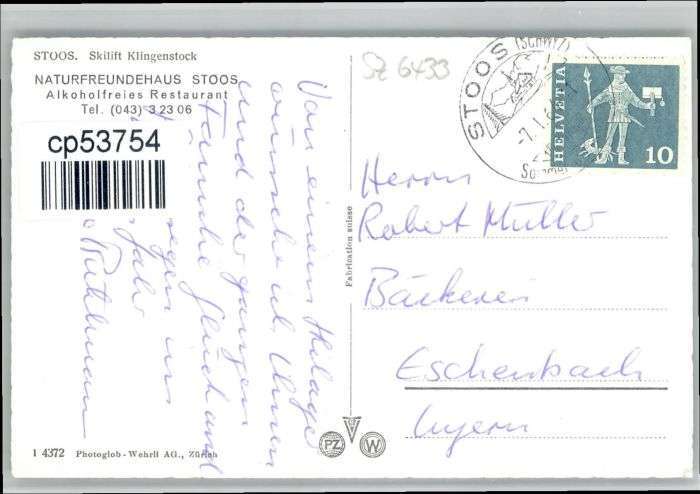 STOOS. Skilift Klingenstock
NATURFREUNDEHAUS STOOS
Alkoholfreies Restaurant
Tel. (043) 3 23 06
cp53754
Sz 6433
STOOS (SCHWYZ)
HELVETIA
10
Von einem Skilager
wünsche ich Ihnen
und der ganzen
Familie Glück und
Segen ins
Jahr
Fabrication suisse
Herrn
Robert Müller
Bäckerei
Eschenbach
Luzern
1 4372 Photoglob-Wehrli AG., Zürich
PZ
W